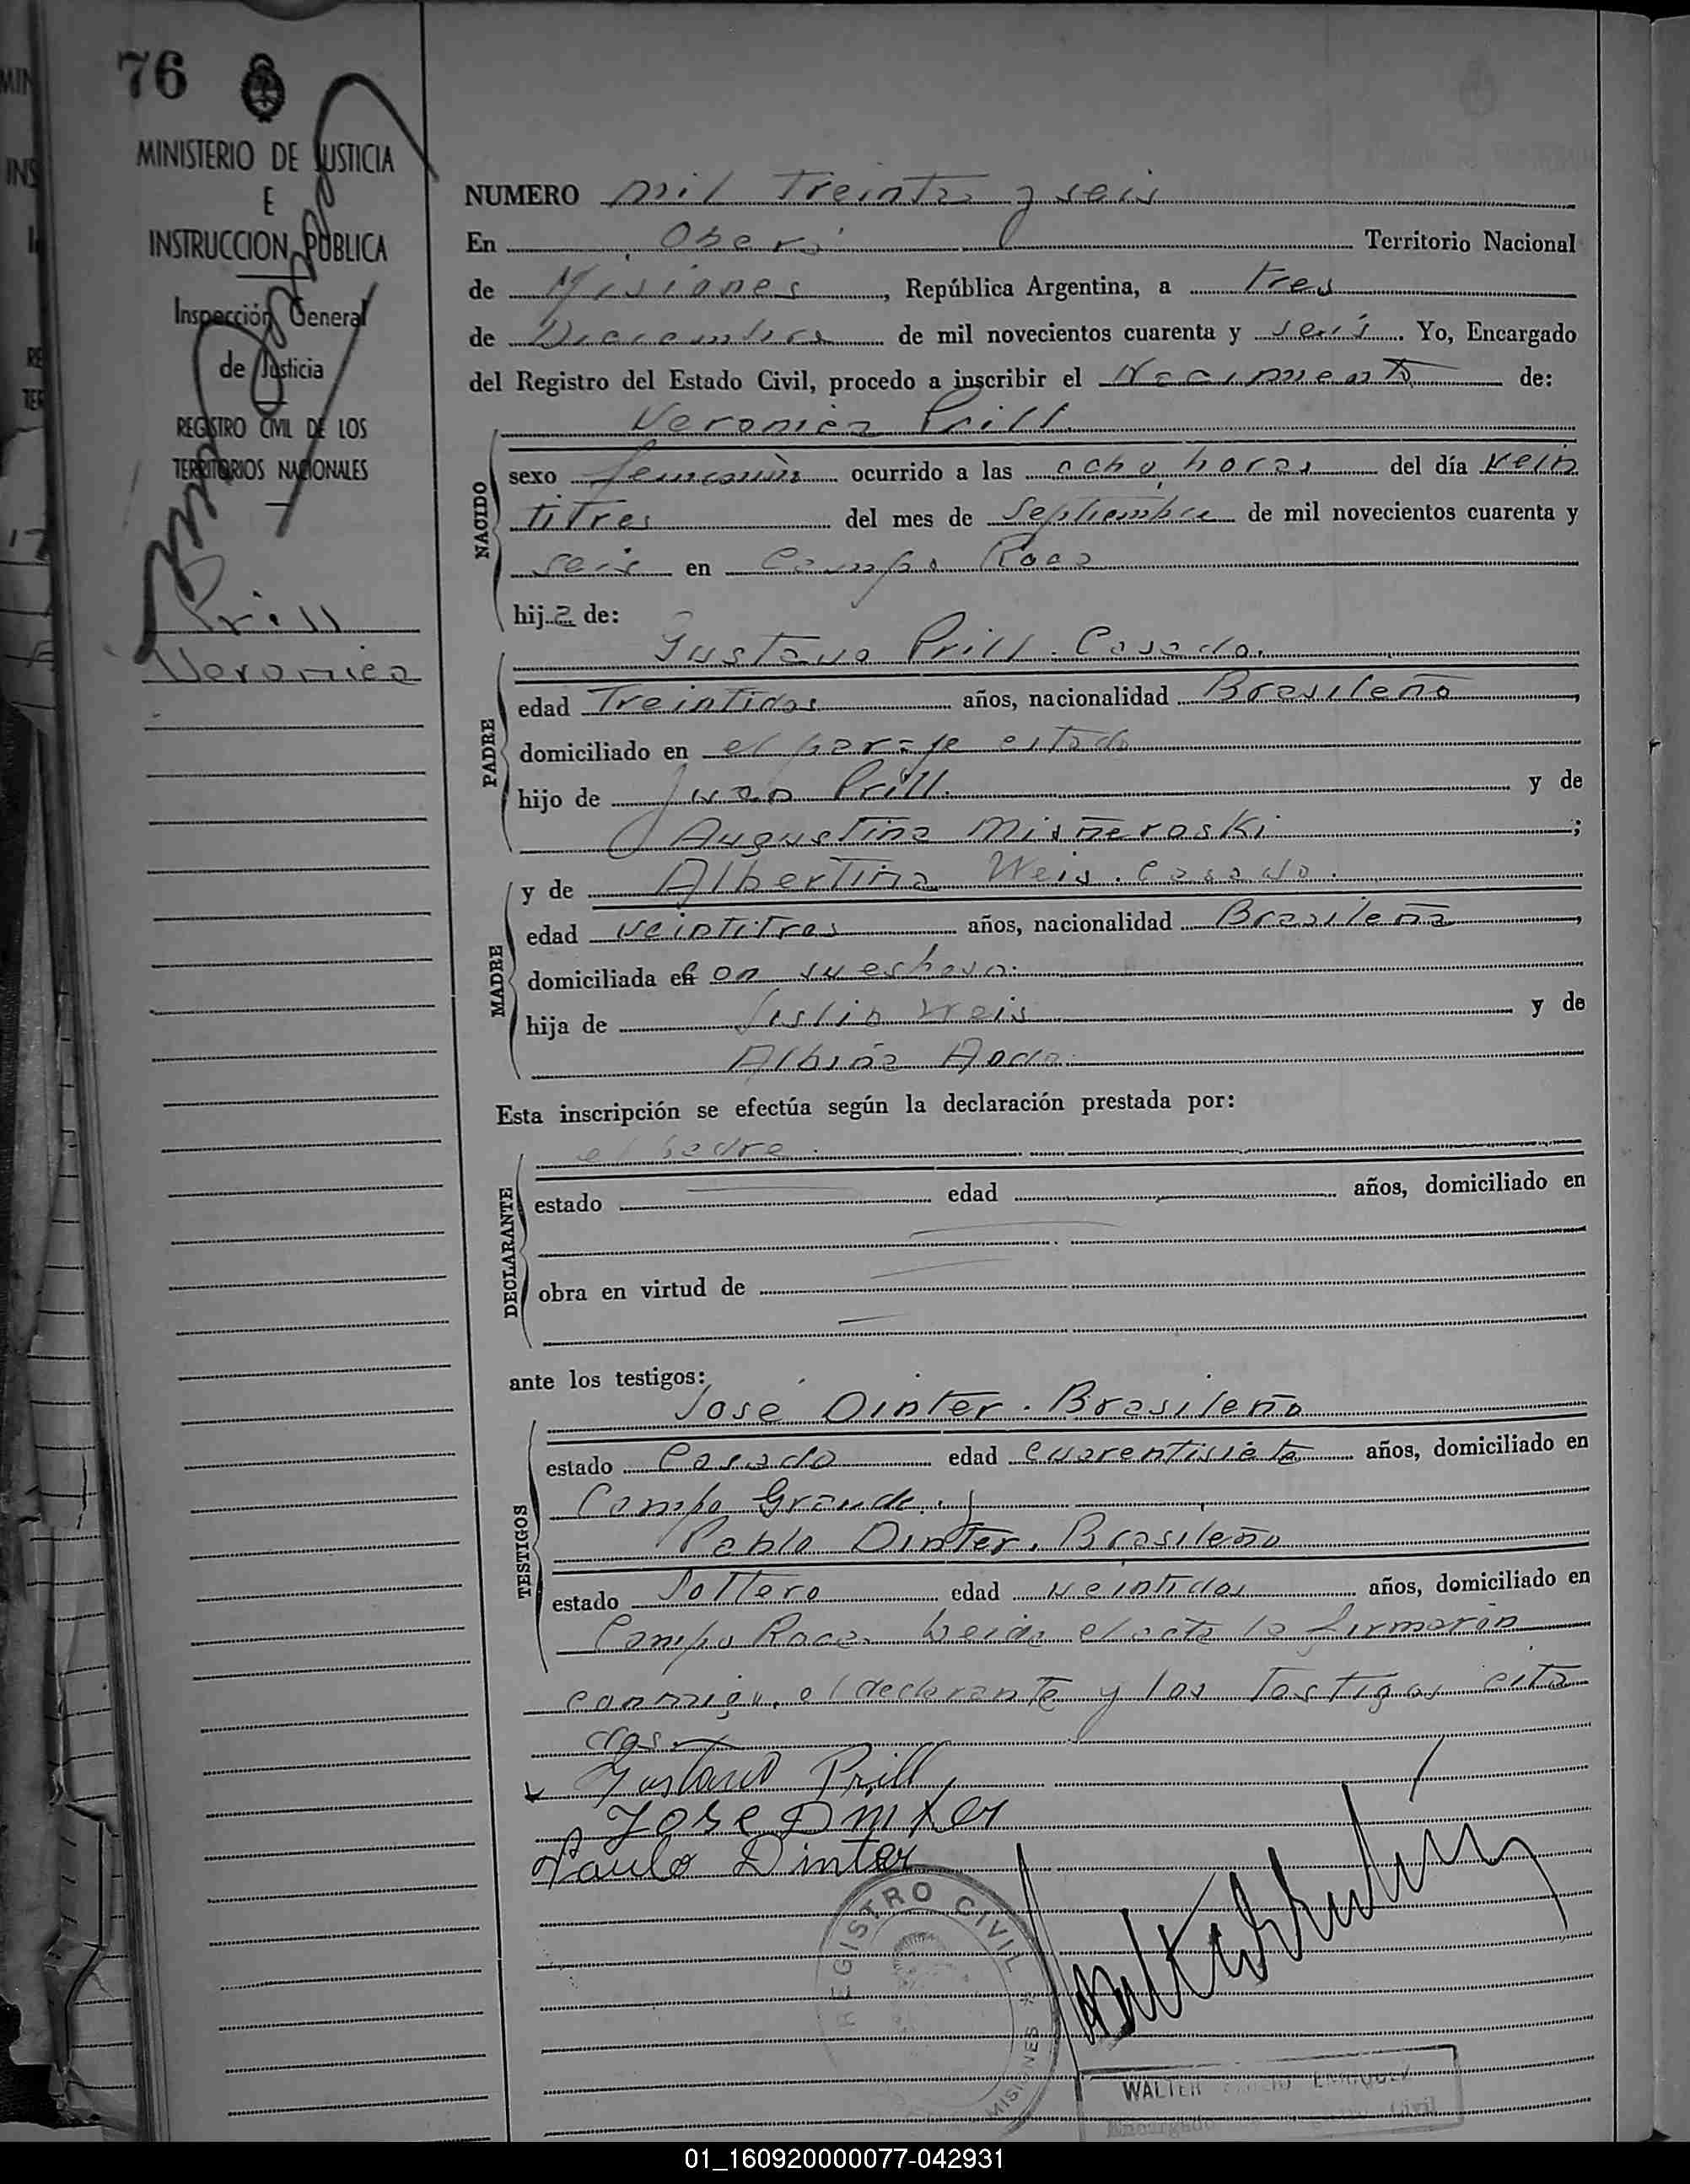 76
MINISTERIO DE JUSTICIA
E
INSTRUCCION PUBLICA
Inspección General
de Justicia
REGISTRO CIVIL DE LOS
TERRITORIOS NACIONALES
Prill
Veronica
NUMERO mil treinta y seis
En Oberá Territorio Nacional
de Misiones, República Argentina, a tres
de Diciembre de mil novecientos cuarenta y seis. Yo, Encargado
del Registro del Estado Civil, procedo a inscribir el Nacimiento de:
NACIDO
Veronica Prill
sexo femenino ocurrido a las ocho horas del día vein
titres del mes de Septiembre de mil novecientos cuarenta y
seis en Campo Roca
hija de:
PADRE
Gustavo Prill. Casado.
edad Treintidos años, nacionalidad Brasileño,
domiciliado en el paraje citado
hijo de Juan Prill. y de
Augustina ;
MADRE
y de Albertina Weis. Casada.
edad veintitres años, nacionalidad Brasileña,
domiciliada con su esposo.
hija de Weis y de
Albina
Esta inscripción se efectúa según la declaración prestada por:
DECLARANTE
el padre.
estado edad años, domiciliado en
obra en virtud de
ante los testigos:
TESTIGOS
José Dinter. Brasileño
estado Casado edad cuarentisiete años, domiciliado en
Campo Grande. y
Pablo Dinter. Brasileño
estado Soltero edad veintidos años, domiciliado en
Campo Roca. Leida el acta la firmaron
conmigo, el declarante y los testigos cita
dos.
Gustavo Prill
Jose Dinter
Paulo Dinter
REGISTRO CIVIL
MISIONES
WALTER
Encargado Civil
01_160920000077-042931